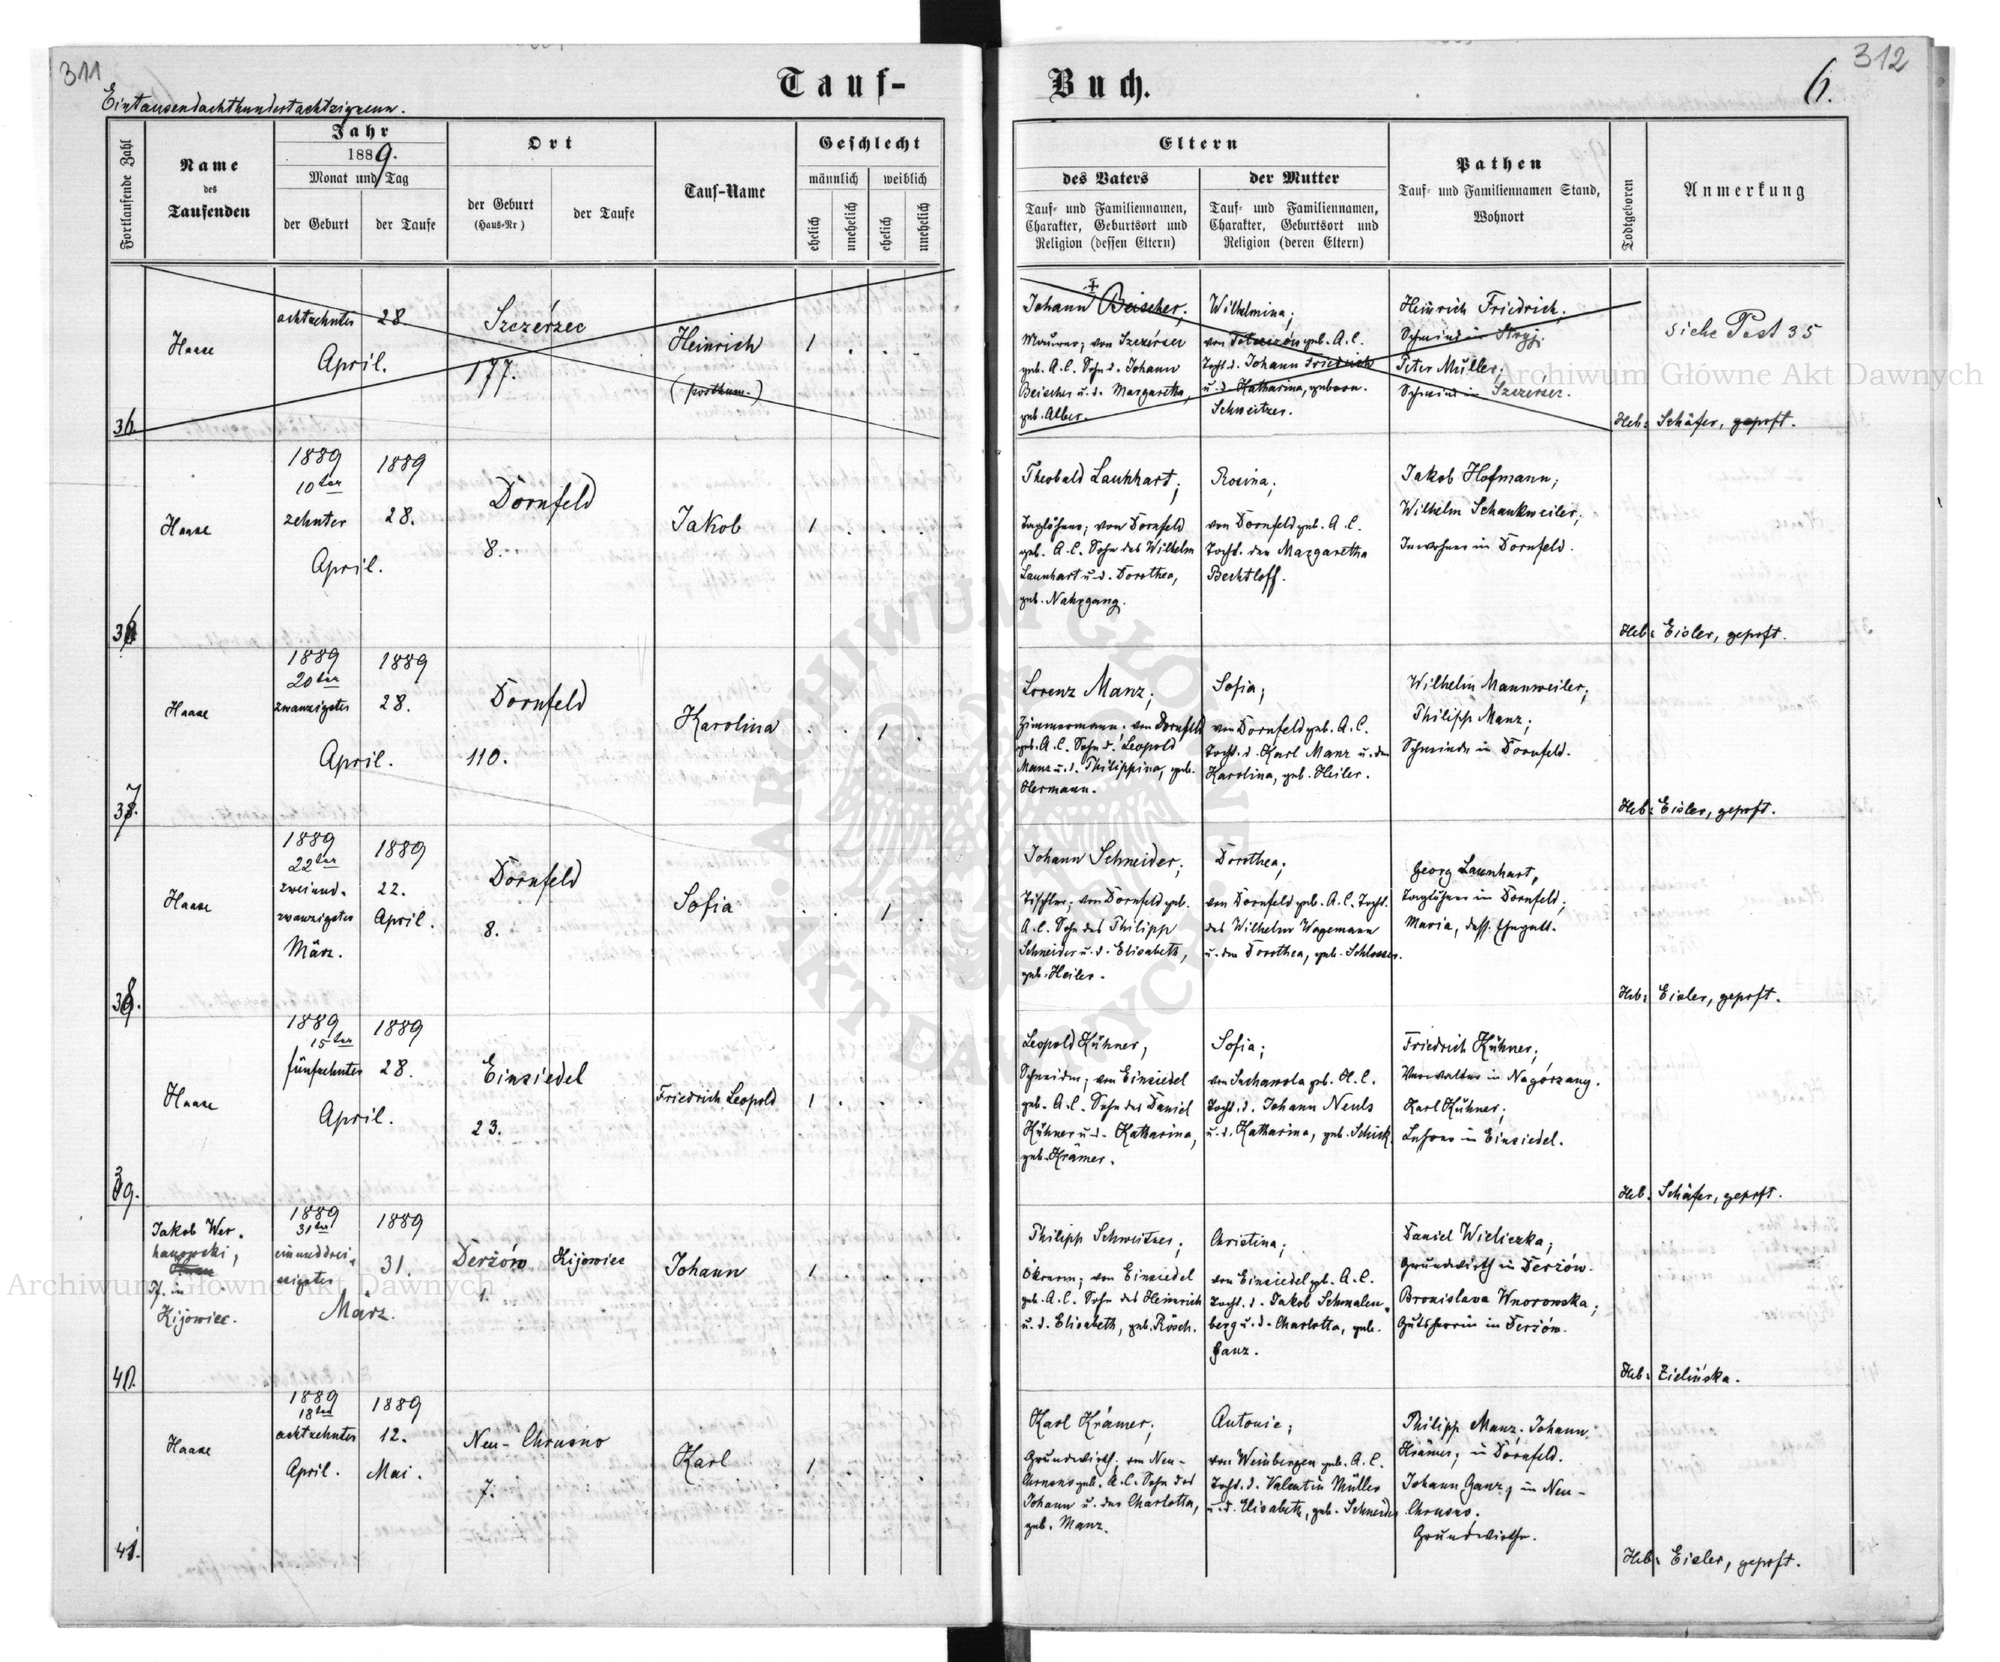 311
312
Tauf-
Buch.
6.
Eintausendachthundertachtzigneun.
Fortlaufende Zahl
Name
des
Taufenden
Jahr
1889.
Monat und Tag
der Geburt
der Taufe
Ort
der Geburt
(Haus-Nr)
der Taufe
Tauf-Name
Geschlecht
männlich
weiblich
ehelich
unehelich
ehelich
unehelich
Eltern
des Vaters
Tauf- und Familiennamen,
Charakter, Geburtsort und
Religion (dessen Eltern)
der Mutter
Tauf- und Familiennamen,
Charakter, Geburtsort und
Religion (deren Eltern)
Pathen
Tauf- und Familiennamen Stand,
Wohnort
Todtgeboren
Anmerkung
36
Haase
achtzehnter
April.
28.
Szczérzec
177.
Heinrich
(posthum.)
1 . . .
Johann Beischer;
Maurer; von Szczérzec
geb. A.C. Sohn d. Johann
Beischer u. d. Margaretha,
geb. Alber.
Wilhelmina;
geb. A.C.
Tocht. d. Johann Friedrich
u. d. Katharina, geborn.
Schweitzer.
Heinrich Friedrich,
Schmied in Stryj.
Peter Müller,
Schmied in Szczérzec.
siehe Post 35
Heb: Schäfer, geprft.
Haase
1889
10ter
zehnter
April.
1889
28.
Dornfeld
8.
Jakob
1 . . .
Theobald Launhart;
Taglöhner; von Dornfeld
geb. A.C. Sohn des Wilhelm
Launhart u. d. Dorothea,
geb. Nahrgang.
Rosina;
von Dornfeld geb. A.C.
Tocht. der Margaretha
Bechtloff.
Jakob Hofmann;
Wilhelm Schankweiler;
Inwohner in Dornfeld.
Heb: Eisler, geprft.
37.
Haase
1889
20ter
zwanzigster
April.
1889
28.
Dornfeld
110.
Karolina
. . 1 .
Lorenz Manz;
Zimmermann. von Dornfeld
geb. A.C. Sohn d. Leopold
Manz u. d. Philippina, geb.
Hermann.
Sofia;
von Dornfeld geb. A.C.
Tocht. d. Karl Manz u. der
Karolina, geb. Heiler.
Wilhelm Mannweiler;
Philipp Manz;
in Dornfeld.
Heb: Eisler, geprft.
38.
Haase
1889
22ter
zweiund-
zwanzigster
März.
1889
22.
April.
Dornfeld
8.
Sofia
. . 1 .
Johann Schneider;
Tischler; von Dornfeld geb.
A.C. Sohn des Philipp
Schneider u. d. Elisabeth,
geb. Heiler.
Dorothea;
von Dornfeld geb. A.C. Tocht.
des Wilhelm Wagemann
u. der Dorothea, geb. Schlosser.
Georg Launhart,
Taglöhner in Dornfeld;
Maria, dess. Ehegatt.
Heb: Eisler, geprft.
39.
Haase
1889
15ter
fünfzehnter
April.
1889
28.
Einsiedel
23.
Friedrich Leopold
1 . . .
Leopold Kühner,
Schneider; von Einsiedel
geb. A.C. Sohn des Daniel
Kühner u. d. Katharina,
geb. Krämer.
Sofia;
geb. A.C.
Tocht. d. Johann Neuls
u. d. Katharina, geb. Schick.
Friedrich Kühner;
Verwalter in
Karl Kühner;
Lehrer in Einsiedel.
Heb. Schäfer, geprft.
40.
Jakob Wer-
hanowski,
Pf. in
Kijowiec.
1889
31ter
einunddrei-
ssigster
März.
1889
31.
Derżów
1.
Kijowiec
Johann
1 . . .
Philipp Schweitzer;
Ökonom; von Einsiedel
geb. A.C. Sohn des Heinrich
u. d. Elisabeth, geb. Rösch.
Christina;
von Einsiedel geb. A.C.
Tocht. d. Jakob Schmalen-
berg u. d. Charlotta, geb.
Ganz.
Daniel Wieliczka;
Grundwirth in Derżów.
Bronislava Wnorowska;
Gutsherrin in Derżów.
Heb: Zielińska.
41.
Haase
1889
18ter
achtzehnter
April.
1889
12.
Mai.
Neu-Chrusno
7.
Karl
1 . . .
Karl Krämer;
Grundwirth; von Neu-
Chrusno geb. A.C. Sohn des
Johann u. der Charlotta,
geb. Manz.
Antonie;
von Weinbergen geb. A.C.
Tocht. d. Valentin Müller
u. d. Elisabeth, geb. Schneider
Philipp Manz; Johann
Krämer; in Dornfeld.
Johann Ganz, in Neu-
Chrusno.
Grundwirthe.
Heb: Eisler, geprft.
Archiwum Główne Akt Dawnych
Archiwum Główne Akt Dawnych
ARCHIWUM GŁÓWNE AKT DAWNYCH